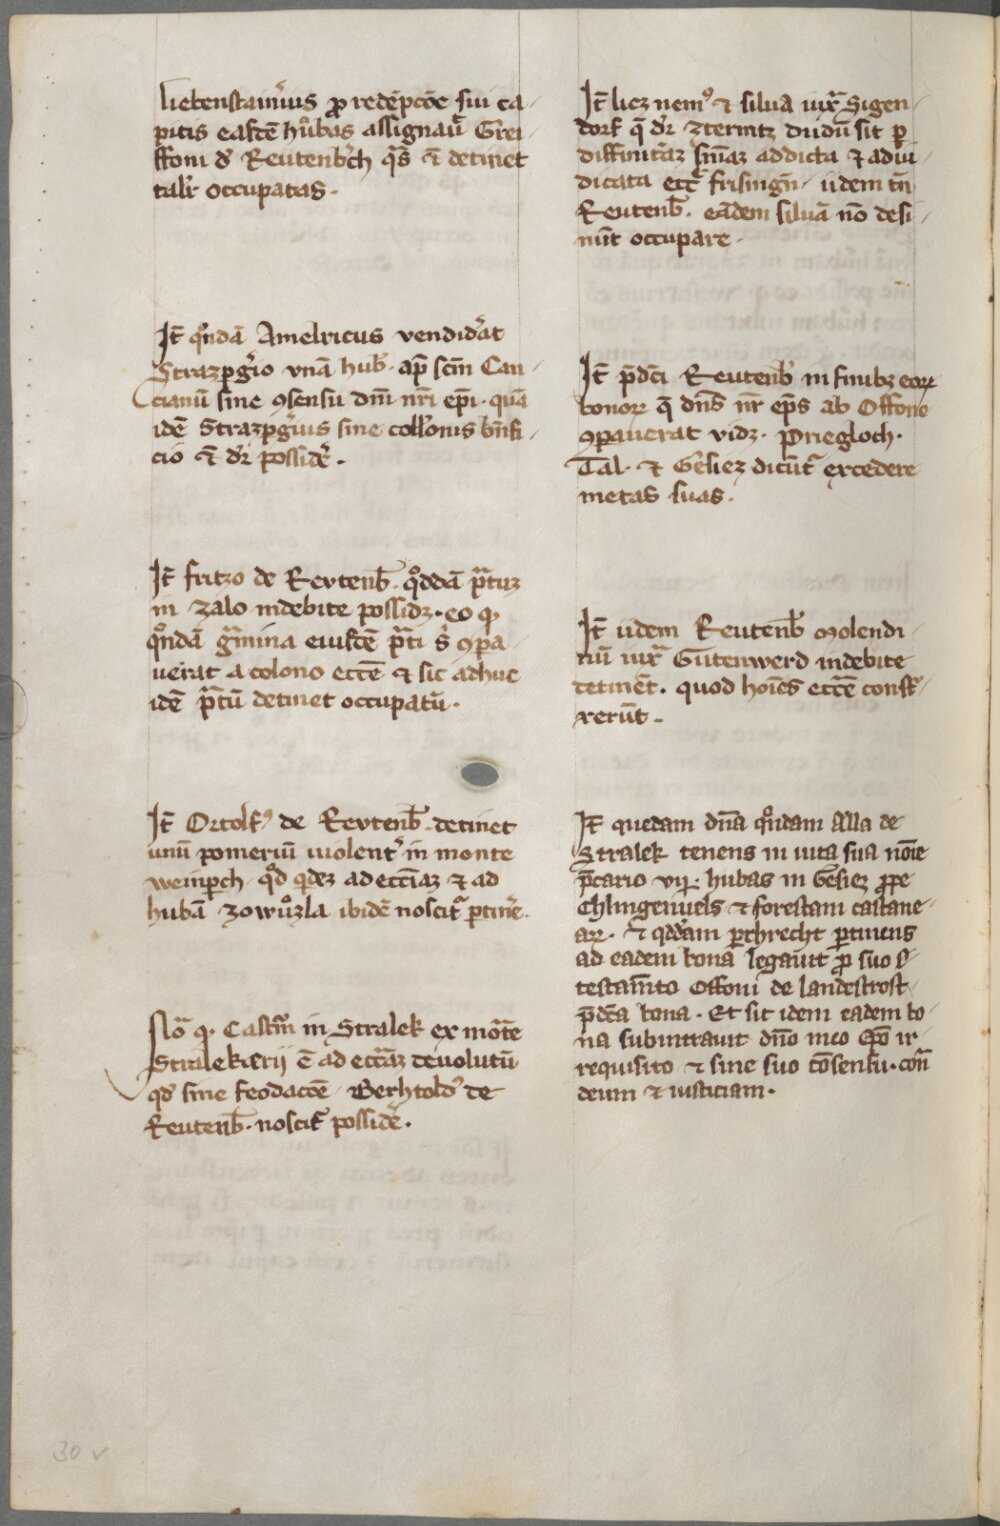 liebenstainˀius ꝓ redēpcōe sui ca-
pitis easdē hůbas assignaūt Grei-
ffoni dˀ Reutenbˀch qͣs ⁊ detinet
talit̾ occupatas.
It̄ qͦndā Amelricus vendidˀat
Strazpgˀio vnā hub̾. ap̄ sc̄m Can-
cianū sine ꝯsensu dn̄i nr̄i ep̄i. quā
idē Strazpgˀius sine coll̾onis bn̄fi-
cio ⁊ dr̄ possidˀe.
It̄ fritzo de Revtenb̄. qͦddā pͣtuꝫ
in zalo indebite possidꝫ. eo ꝙ
qͦndā gͣmina eiusdē pͣti s̄ ꝯpa-
uerat a colono ecc̄e ⁊ sic adhuc
idē pͣtū detinet occupatū.
It̄ Ortolfꝰ de Revtenb̄. detinet
unū pomeriū uiolent̾ in monte
weinpch. qͦd qdeꝫ ad ecc̄iaꝫ ⁊ ad
hubā zowůzla ibidē noscit̾ ꝑtinˀe.
Nōa ꝙ Castrū in Stralek ex mōte
Stralekaͤrij ē ad ecc̄aꝫ deuolutū
qd̾ sine feodacōe Berhtold̾ de
Reutenb̄. noscit̾ possidˀe.
It̄ licꝫ nemꝰ ⁊ silua iuxͣ Sigen-
dorf q̄ dr̄ ztermtz dudū sit ꝑ
diffinitāꝫ sn̄iaꝫ addicta ⁊ adiu-
dicata ecc̄e frisingn̄. iidem tn̄
Reutenb̄. eādem siluā nō desi-
nūt occupare.
It̄ p̄dc̄i Reutenb̄ in finibꝫ eoꝝ
bonoꝝ q̄ dn̄s nr̄ ep̄s ab Offone
ꝯpauerat vidꝫ. Priegloch.
Tal. ⁊ Gesiez dicūt̾ excedere
metas suas.
It̄ iidem Reutenb̄ molendi-
nū iuxͣ Gutenwerd indebite
detinēt. quod hoīes ecc̄e const̾-
xerūt.
It̄ quedam dn̄a qͦndam Alla de
Stralek tenens in uita sua noīe
p̄cario vij. hubas in Gesiez ꝓpe
Chlingenuels ⁊ forestam castane-
aꝝ. ⁊ qdd̾am ꝑchrecht ꝑtinens
ad eadem bona legauit ꝓ suo
testam̄to Offoni de landestrost
p̄dc̄a bona. Et sit idem eadem bo-
na subintrauit dn̄o meo Ep̄o ir-
requisito ⁊ sine suo cōsensu. conͣ
deum ⁊ iusticiam.
30 v